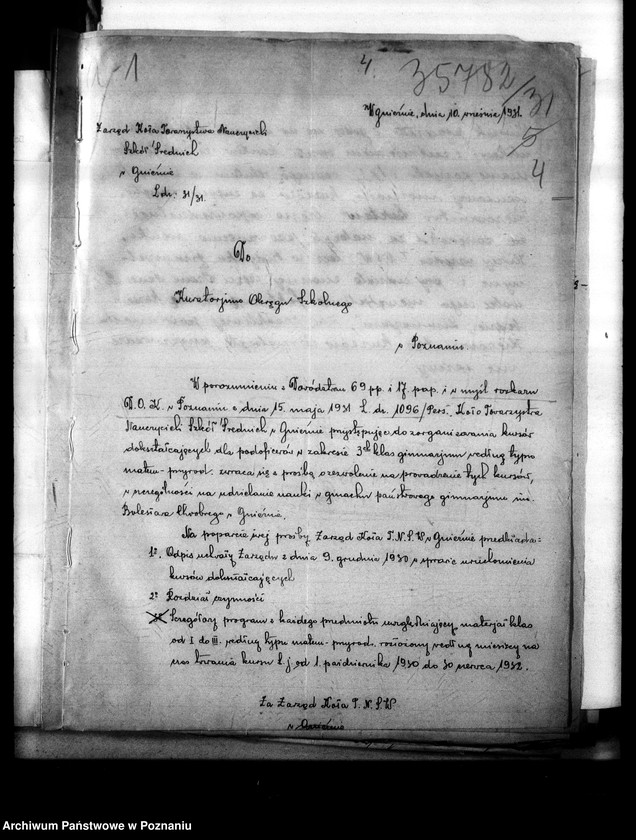 1
4.
35782/31
5
4
W Gnieźnie, dnia 10. września 1931.
Zarząd Koła Towarzystwa Nauczycieli
Szkół Średnich
w Gnieźnie
L.dz. 31/31.
Do
Kuratorjum Okręgu Szkolnego
w Poznaniu
W porozumieniu z Dowództwem 69 pp. i 17. pap. i w myśl rozkazu
D.O.K. w Poznaniu z dnia 15. maja 1931 L. dz. 1096/Pers. Koło Towarzystwa
Nauczycieli Szkół Średnich w Gnieźnie przystępując do zorganizowania kursów
dokształcających dla podoficerów w zakresie 3ech klas gimnazjum według typu
matem.-przyrod. zwraca się z prośbą o zezwolenie na prowadzenie tych kursów,
w szczególności na udzielanie nauki w gmachu państwowego gimnazjum im.
Bolesława Chrobrego w Gnieźnie.
Na poparcie swej prośby Zarząd Koła T.N.S.W. w Gnieźnie przedkłada:
1º. Odpis uchwały Zarządu z dnia 9. grudnia 1930 w sprawie uruchomienia
kursów dokształcających
2º Rozdział czynności
Szczegółowy program z każdego przedmiotu uwzględniający materjał klas
od I do III. według typu matem.-przyrod. rozłożony według miesięcy na
czas trwania kursu t.j. od 1. października 1930 do 30 czerwca 1932.
Za Zarząd Koła T.N.S.W.
w Gnieźnie
Archiwum Państwowe w Poznaniu